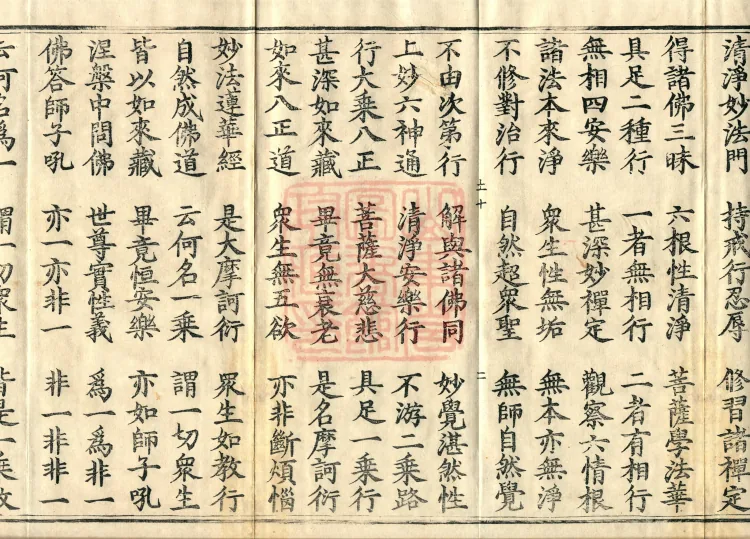 清淨妙法門　持戒行忍辱　修習諸禪定
得諸佛三昧　六根性清淨　菩薩學法華
具足二種行　一者無相行　二者有相行
無相四安樂　甚深妙禪定　觀察六情根
諸法本來淨　衆生性無垢　無本亦無淨
不修對治行　自然超衆聖　無師自然覺
二
不由次第行　解與諸佛同　妙覺湛然性
上妙六神通　清淨安樂行　不游二乘路
行大乘八正　菩薩大慈悲　具足一乘行
甚深如來藏　畢竟無衰老　是名摩訶衍
如來八正道　衆生無五欲　亦非斷煩惱
妙法蓮華經　是大摩訶衍　衆生如教行
自然成佛道　云何名一乘　謂一切衆生
皆以如來藏　畢竟恒安樂　亦如師子吼
涅槃中問佛　世尊實性義　爲一爲非一
佛答師子吼　亦一亦非一　非一非非一
云何名爲一　謂一切衆生　皆是一乘故